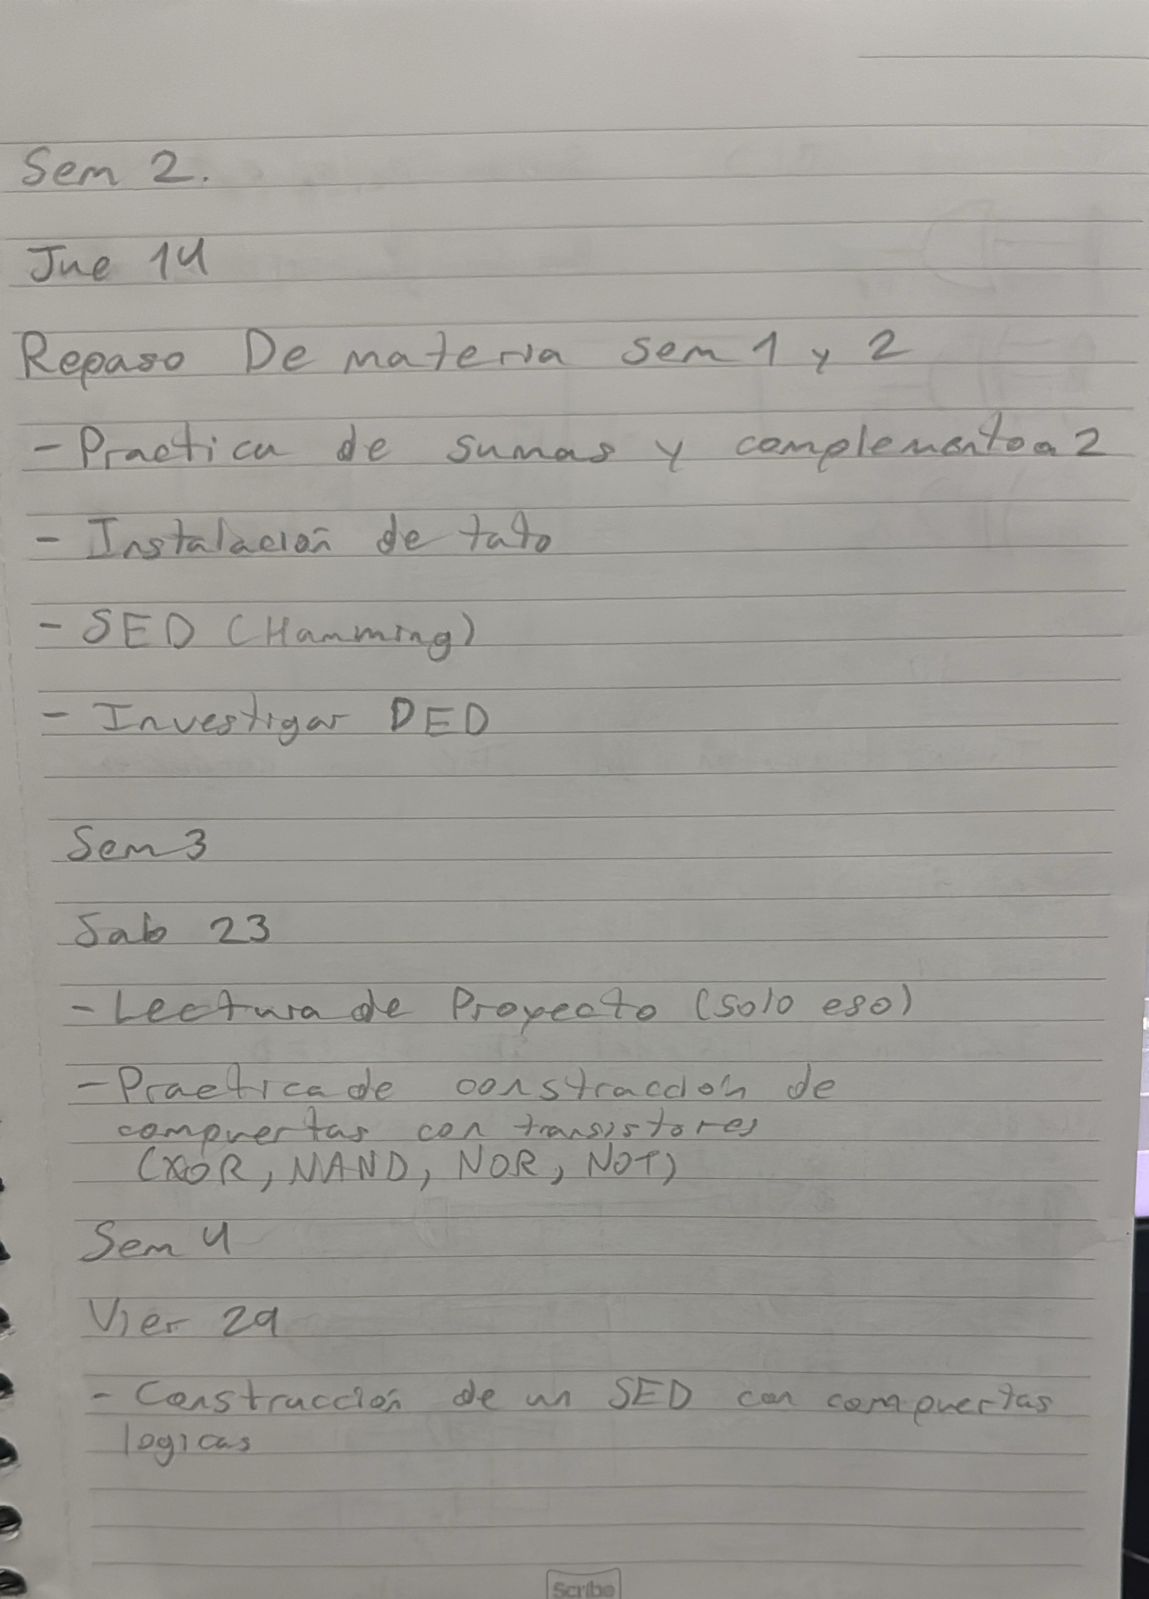 Sem 2.
Jue 14
Repaso De materia sem 1 y 2
- Practica de sumas y complemento a 2
- Instalación de tato
- SED (Hamming)
- Investigar DED
Sem 3
Sab 23
- Lectura de Proyecto (solo eso)
- Practica de construccion de
compuertas con transistores
(XOR, NAND, NOR, NOT)
Sem 4
Vier 29
- Construcción de un SED con compuertas
logicas
Scribe